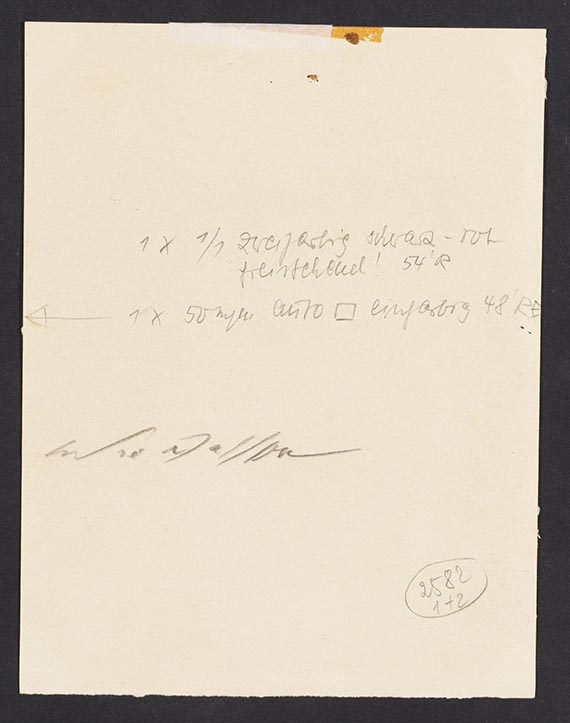 1 x 1/1 zweifarbig schwarz - rot
freistehend! 54'R
1 x 50 auto □ einfarbig 48'R
2582
1+2